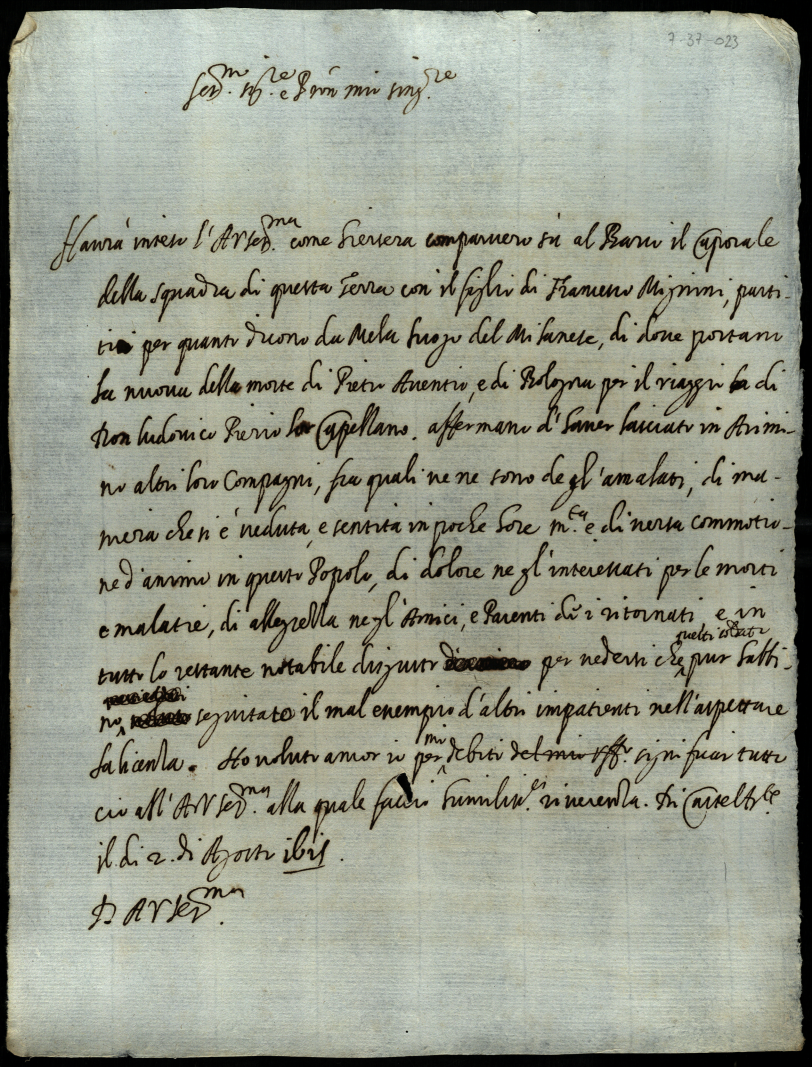 7-37-023
Ser.mo Sig.re e Pron mio sing.re
Haurà inteso l'A V Ser.ma come hiersera comparuero sù al Barco il Caporale
della squadra di questa Terra con il figlio di Francesco Mignini, parti-
ti per quanto dicono da Mela luogo del Milanese, di doue portano
la nuoua della morte di Pietro Auentio, e di Bologna per il viaggio di
Don Ludouico Pierio lor Capellano. affermano d'hauer lasciato in Arimi-
no altri loro Compagni, fra quali ue ne sono degl'amalati, di ma-
niera che si è ueduta, e sentita in poche hore m.ta e diuersa commotio-
ne d'animo in questo Popolo, di dolore negl'interessati per le morti
e malatie, di allegrezza negl'Amici, e Parenti di i ritornati e in
tutto lo restante notabile disgusto per uedersi che pur habbi-
no seguitato il mal esempio d'altri impatienti nell'aspettare
la licenza. Ho voluto ancor io per mi debito del mio off.o significar tutto
ciò all'A V Ser.ma alla quale faccio humiliss.a riuerenza. Di Casteld.te
il di 2. di Agosto 1615.
D A V Ser.ma